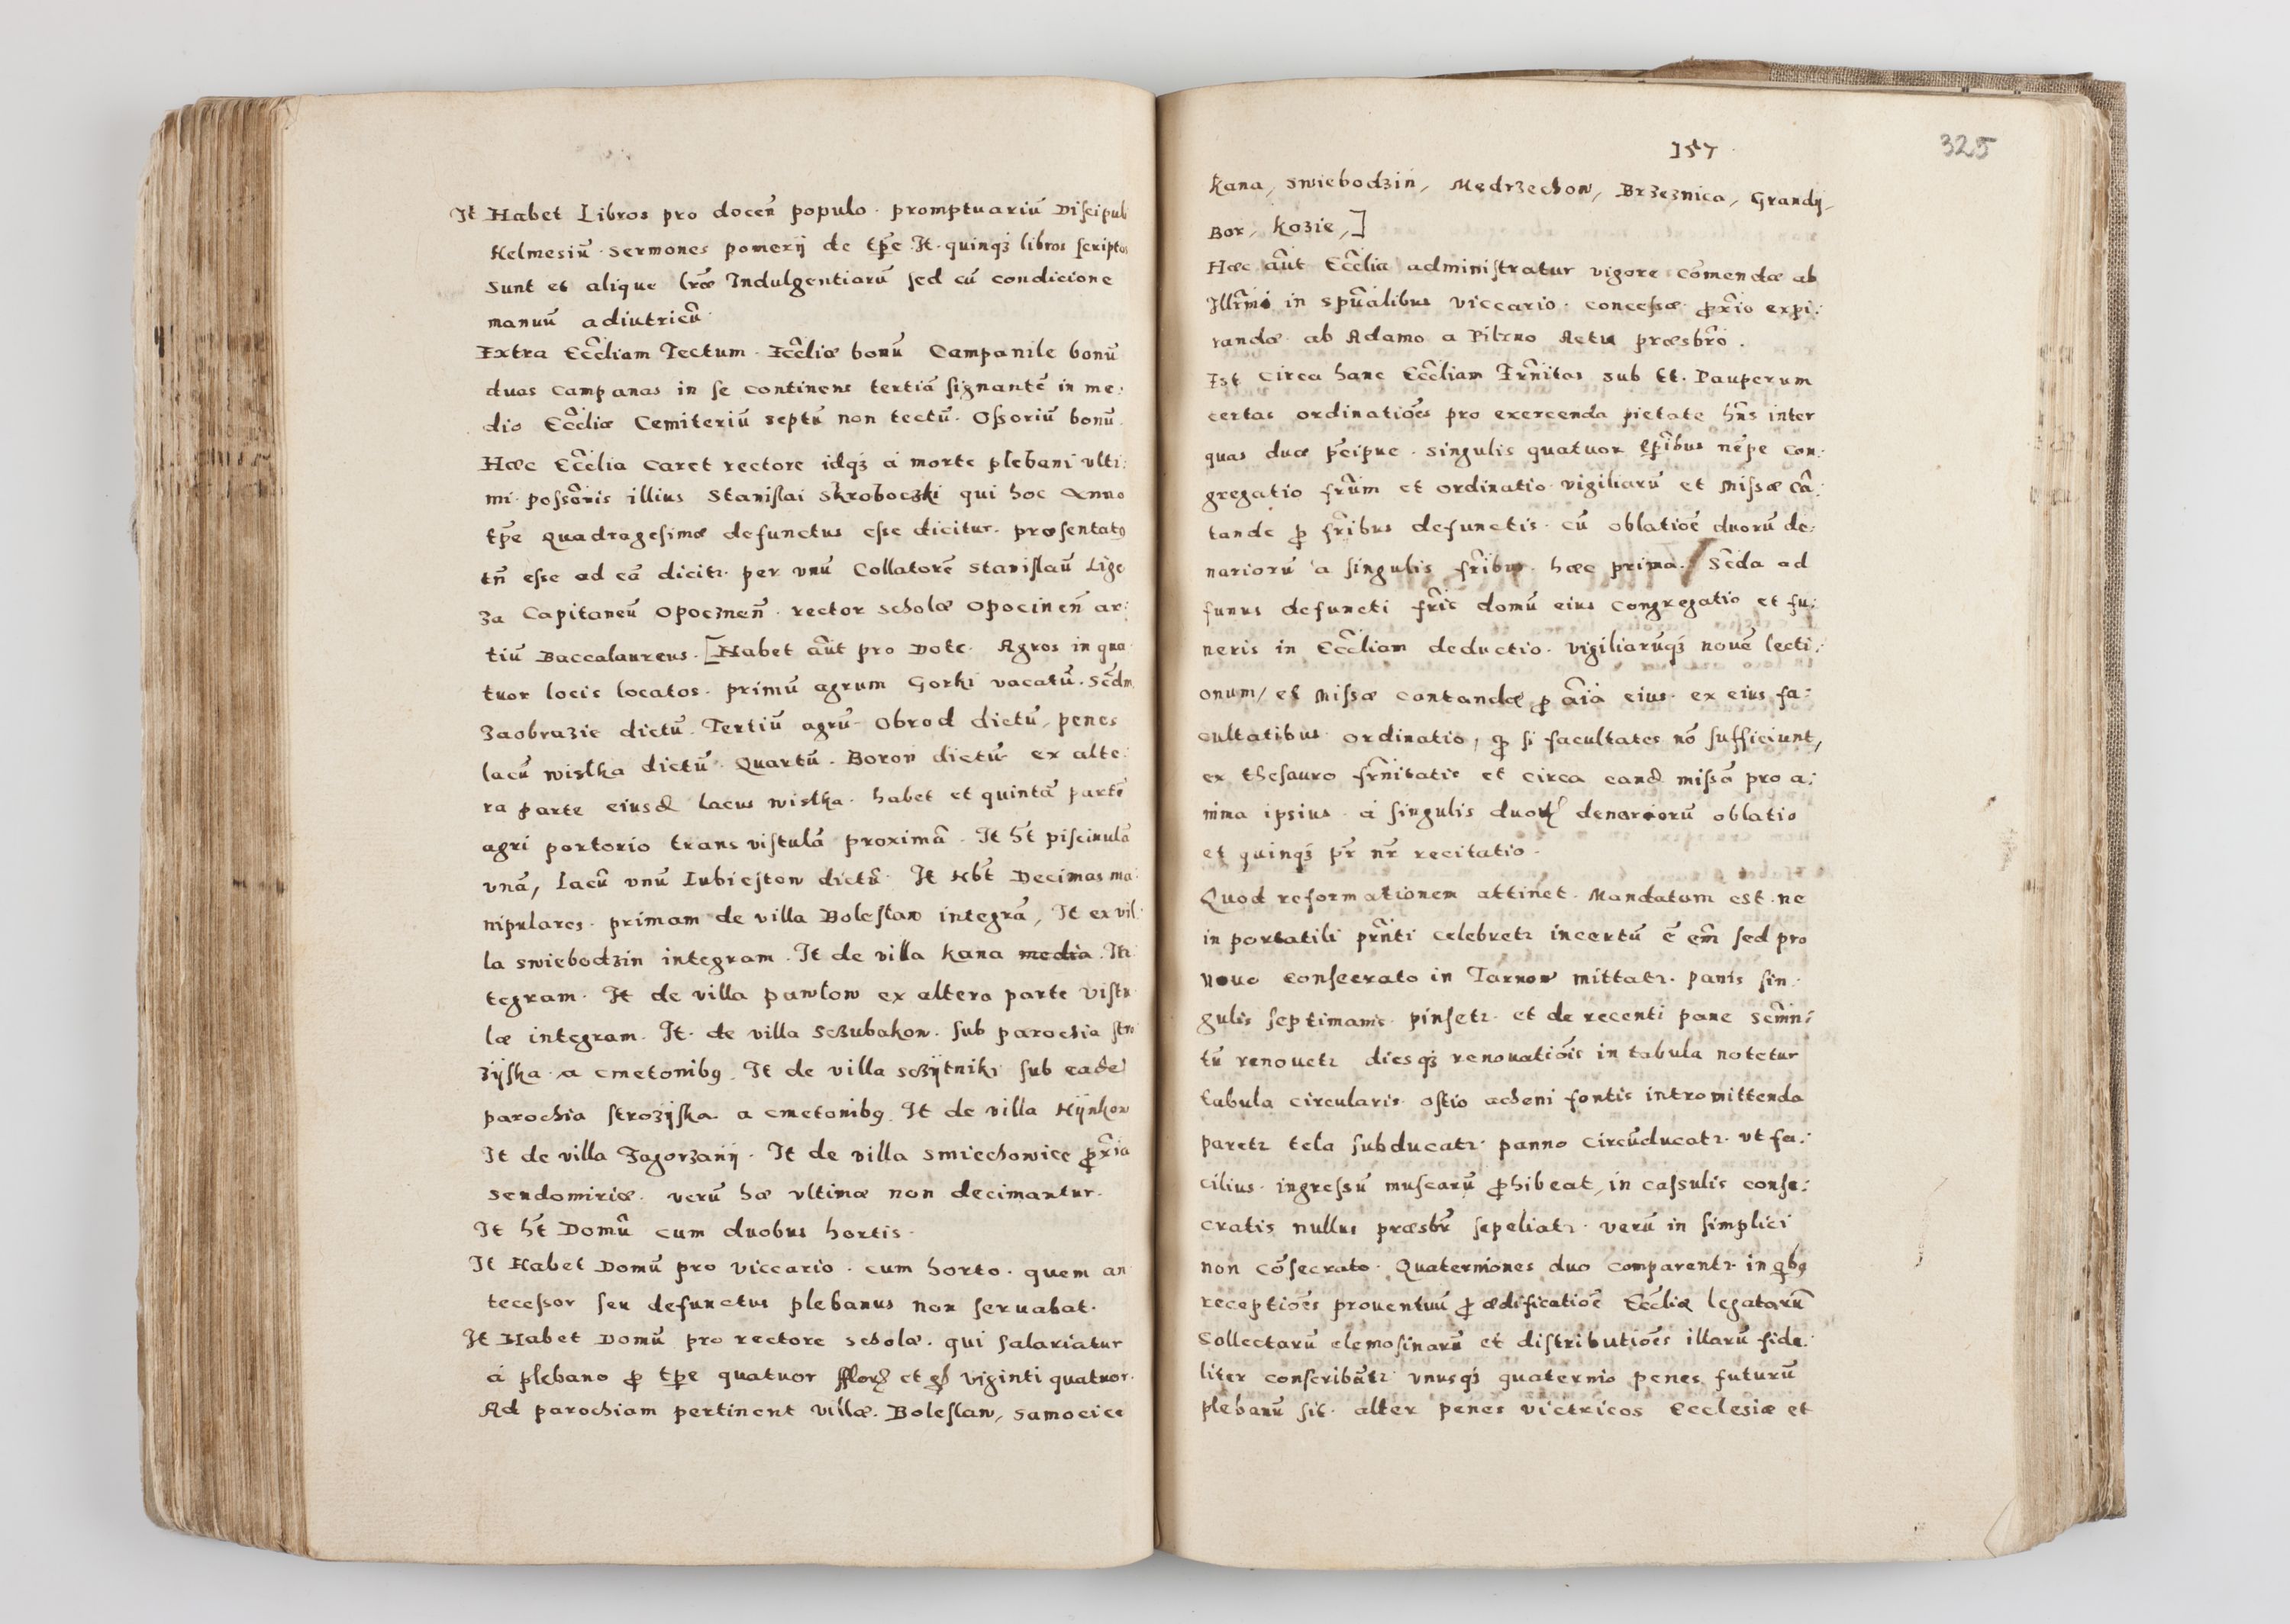 It Habet Libros pro doceñ populo · promptuariũ Discipuli
Helmesiũ · Sermones pomerij de tp̃e · It · quinqȝ libros scriptos
Sunt et alique lr̃æ Indulgentiarũ sed cũ condicione
manuũ adiutricũ
Extra Ecc̃liam Tectum · Ecc̃liæ bonũ Campanile bonũ
duas campanas in se continens tertiã signantẽ in me:
dio Ecc̃liæ Cemiteriũ septũ non tectũ · Ossoriũ bonũ
Hæc Ecc̃lia caret rectore idqȝ á morte plebani vlti:
mi possor̃is illius Stanislai Skroboczki qui hoc Anno
tp̃e Quadragesimæ defunctus esse dicitur · præsentatꝯ
tñ esse ad eã dicitꝛ · per vnũ Collatorẽ Stanislaũ Lige
za Capitaneũ Opocznen̄ · rector scholæ Opocinen̄ ar:
tiũ Baccalaureus · [Habet aũt pro Dote · Agros in qua
tuor locis locatos · primũ agrum Gorki vacatũ · Sc̃dm
Zaobrazie dictũ · Tertiũ agrũ Obrod dictũ, penes
lacũ wislka dictũ · Quartũ · Boron dictũ ex alte:
ra parte eiusd lacus wislka · habet et quintã partẽ
agri portorio trans vistulã proximã · It h̃t piscinulã
vnã, lacũ vnũ Lubiejtow dictũ · It Hb̃t Decimas ma:
nipulares · primam de villa Boleslaw integrã, It ex vil:
la swiebodzin integram · It de villa kana media · In
tegram · It de villa pawlow ex altera parte Vistu
læ integram · It · de villa Sczubakow · sub parochia stro
zÿska · a cmetonibꝯ · It de villa sczÿtniki sub eadẽ
parochia strozÿska a cmetonibꝯ · It de villa Hÿnkow
It de villa Zagorzanÿ · It de villa smiechowice ꝓxia
sendomiriæ · verũ hæ vltimæ non decimantur ·
It h̃t Domũ cum duobus hortis ·
It Habet Domũ pro viccario · cum horto · quem an
tecessor seu defunctus plebanus non seruabat ·
It Habet Domũ pro rectore scholæ · qui salariatur
á plebano ꝓ tp̃e quatuor et viginti quatuor ·
Ad parochiam pertinent villæ · Boleslaw, samocice
157
325
kana, swiebodzin, Mędrzechow, Brzeznica, Grandÿ,
Bor, kozie,]
Hæc aũt Ecc̃lia administratur vigore cõmendæ ab
Illr̃mo in spũalibus viccario · concessæ · expi:
randæ · ab Adamo a Pilzno Actu præsbr̃o ·
Est circa hanc Ecc̃liam Fr̃nitas sub tt · Pauperum
certas ordinatiões pro exercenda pietate hñs inter
quas duæ p̃cipue · singulis quatuor tp̃ibus nẽpe con:
gregatio fr̃um et ordinatio vigiliarũ et Missæ cã:
tande ꝓ fr̃ibus defunctis · cũ oblatiõe duorũ de:
nariorũ á singulis fr̃ibus · hæc prima · / Sc̃da ad
funus defuncti fr̃is domũ eius congregatio et fu:
neris in Ecc̃liam deductio · vigiliarũqȝ nouẽ lecti:
onum, et Missæ cantandæ ꝓ aĩa eius · ex eius fa:
cultatibus ordinatio, si facultates nõ sufficiunt,
ex thesauro fr̃nitatis et circa eand missã pro a:
nima ipsius · á singulis duorꝝ denariorũ oblatio
et quinqȝ pr̃ nr̃ recitatio ·
Quod reformationem attinet · Mandatum est · ne
in portatili pr̃nti celebretꝛ incertũ ẽ em̃ sed pro
nouo consecrato in Tarnow mittatꝛ · panis sin:
gulis septimanis · pinsetꝛ · et de recenti pane Scm̃i:
tũ renouetꝛ diesqȝ renouatiõis in tabula notetur
tabula circularis ostio acheni fontis intromittenda
paretꝛ tela subducatꝛ · panno circũducatꝛ · vt fa:
cilius · ingressũ muscarũ ꝓhibeat, in cassulis conse:
cratis nullus præsbr̃ sepeliatꝛ · verũ in simplici
non cõsecrato · Quaterniones duo comparentꝛ · in qbꝯ
receptiões prouentuũ ꝓ ædificatiõe Ecc̃liæ legatorũ
Collectarũ elemosinarũ et distributiões illarũ fide:
liter conscribãtꝛ vnusqȝ quaternio penes futurũ
plebanũ sit · alter penes victricos Ecclesiæ et